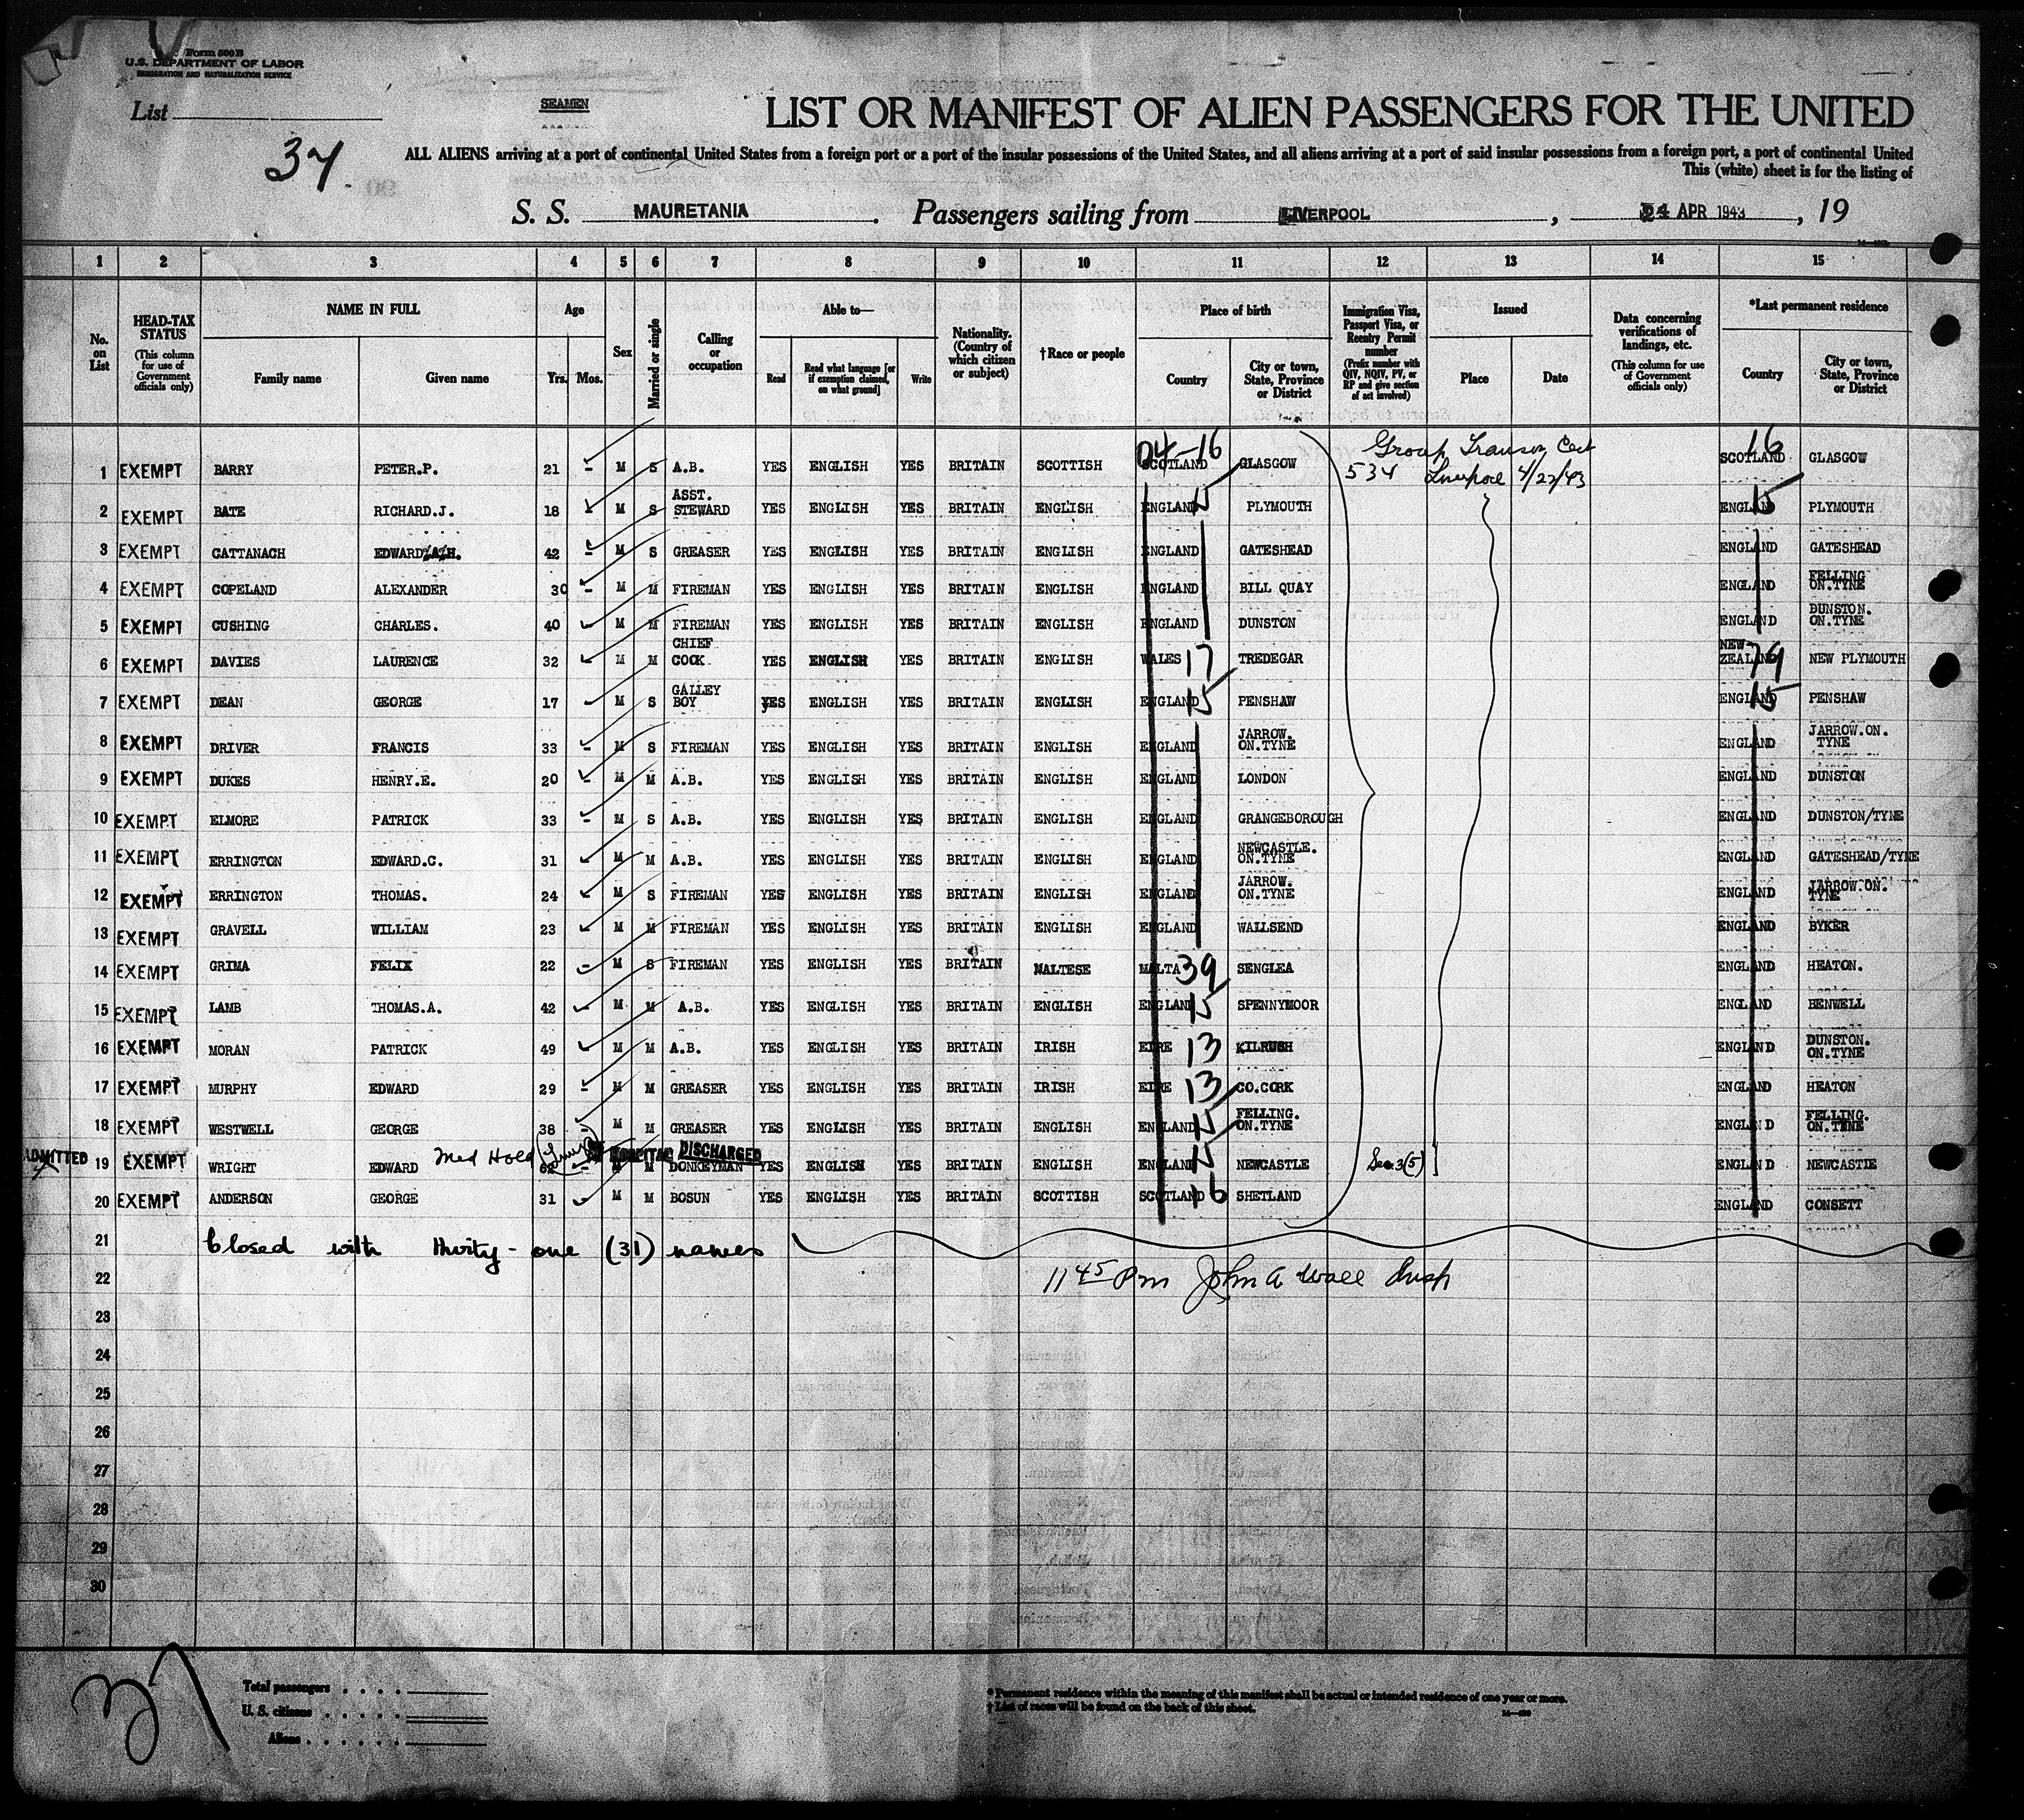 Form 500 B
U.S. DEPARTMENT OF LABOR
IMMIGRATION AND NATURALIZATION SERVICE
List
SEAMEN
LIST OR MANIFEST OF ALIEN PASSENGERS FOR THE UNITED
37.
ALL ALIENS arriving at a port of continental United States from a foreign port or a port of the insular possessions of the United States, and all aliens arriving at a port of said insular possessions from a foreign port, a port of continental United
This (white) sheet is for the listing of
S. S. MAURETANIA . Passengers sailing from LIVERPOOL , 24 APR 1943 , 19
1 2 3 4 5 6 7 8 9 10 11 12 13 14 15
No. on List
HEAD-TAX STATUS (This column for use of Government officials only)
NAME IN FULL Family name Given name
Age Yrs. Mos.
Sex
Married or single
Calling or occupation
Able to— Read Read what language [or if exemption claimed, on what ground] Write
Nationality. (Country of which citizen or subject)
†Race or people
Place of birth Country City or town, State, Province or District
Immigration Visa, Passport Visa, or Reentry Permit number (Prefix number with QIV, NQIV, PV, or RP and give section of act involved)
Issued Place Date
Data concerning verifications of landings, etc. (This column for use of Government officials only)
*Last permanent residence Country City or town, State, Province or District
04-16 Group Transit Cert 16
534 Liverpool 4/22/43
1 EXEMPT BARRY PETER.P. 21 - M S A.B. YES ENGLISH YES BRITAIN SCOTTISH SCOTLAND GLASGOW SCOTLAND GLASGOW
2 EXEMPT BATE RICHARD.J. 18 M S ASST. STEWARD YES ENGLISH YES BRITAIN ENGLISH ENGLAND 15 PLYMOUTH ENGLAND 15 PLYMOUTH
3 EXEMPT CATTANACH EDWARD H. 42 - M S GREASER YES ENGLISH YES BRITAIN ENGLISH ENGLAND GATESHEAD ENGLAND GATESHEAD
4 EXEMPT COPELAND ALEXANDER 30 - M M FIREMAN YES ENGLISH YES BRITAIN ENGLISH ENGLAND BILL QUAY ENGLAND FELLING ON.TYNE
5 EXEMPT CUSHING CHARLES. 40 M M FIREMAN YES ENGLISH YES BRITAIN ENGLISH ENGLAND DUNSTON ENGLAND DUNSTON. ON.TYNE
6 EXEMPT DAVIES LAURENCE 32 M M CHIEF COOK YES ENGLISH YES BRITAIN ENGLISH WALES 17 TREDEGAR NEW ZEALAND 79 NEW PLYMOUTH
7 EXEMPT DEAN GEORGE 17 M S GALLEY BOY YES ENGLISH YES BRITAIN ENGLISH ENGLAND 15 PENSHAW ENGLAND 15 PENSHAW
8 EXEMPT DRIVER FRANCIS 33 - M S FIREMAN YES ENGLISH YES BRITAIN ENGLISH ENGLAND JARROW. ON.TYNE ENGLAND JARROW.ON. TYNE
9 EXEMPT DUKES HENRY.E. 20 - M M A.B. YES ENGLISH YES BRITAIN ENGLISH ENGLAND LONDON ENGLAND DUNSTON
10 EXEMPT ELMORE PATRICK 33 - M S A.B. YES ENGLISH YES BRITAIN ENGLISH ENGLAND GRANGEBOROUGH ENGLAND DUNSTON/TYNE
11 EXEMPT ERRINGTON EDWARD.C. 31 M M A.B. YES ENGLISH YES BRITAIN ENGLISH ENGLAND NEWCASTLE. ON.TYNE ENGLAND GATESHEAD/TYNE
12 EXEMPT ERRINGTON THOMAS. 24 M S FIREMAN YES ENGLISH YES BRITAIN ENGLISH ENGLAND JARROW. ON.TYNE ENGLAND JARROW.ON. TYNE
13 EXEMPT GRAVELL WILLIAM 23 M M FIREMAN YES ENGLISH YES BRITAIN ENGLISH ENGLAND WALLSEND ENGLAND BYKER
14 EXEMPT GRIMA FELIX 22 M S FIREMAN YES ENGLISH YES BRITAIN MALTESE MALTA 39 SENGLEA ENGLAND HEATON.
15 EXEMPT LAMB THOMAS.A. 42 M M A.B. YES ENGLISH YES BRITAIN ENGLISH ENGLAND 15 SPENNYMOOR ENGLAND BENWELL
16 EXEMPT MORAN PATRICK 49 M M A.B. YES ENGLISH YES BRITAIN IRISH EIRE 13 KILRUSH ENGLAND DUNSTON. ON.TYNE
17 EXEMPT MURPHY EDWARD 29 - M M GREASER YES ENGLISH YES BRITAIN IRISH EIRE 13 CO.CORK ENGLAND HEATON
18 EXEMPT WESTWELL GEORGE 38 - M M GREASER YES ENGLISH YES BRITAIN ENGLISH ENGLAND 15 FELLING. ON.TYNE ENGLAND FELLING. ON.TYNE
ADMITTED Med Hold HOSPITAL DISCHARGED
19 EXEMPT WRIGHT EDWARD 62 - M M DONKEYMAN YES ENGLISH YES BRITAIN ENGLISH ENGLAND 15 NEWCASTLE Sec 3(5) ENGLAND NEWCASTLE
20 EXEMPT ANDERSON GEORGE 31 M M BOSUN YES ENGLISH YES BRITAIN SCOTTISH SCOTLAND 16 SHETLAND ENGLAND CONSETT
21 Closed with thirty-one (31) names
22 11 45 Pm John A Wall Insp
23
24
25
26
27
28
29
30
Total passengers
U. S. citizens
Aliens
* Permanent residence within the meaning of this manifest shall be actual or intended residence of one year or more.
† List of races will be found on the back of this sheet.